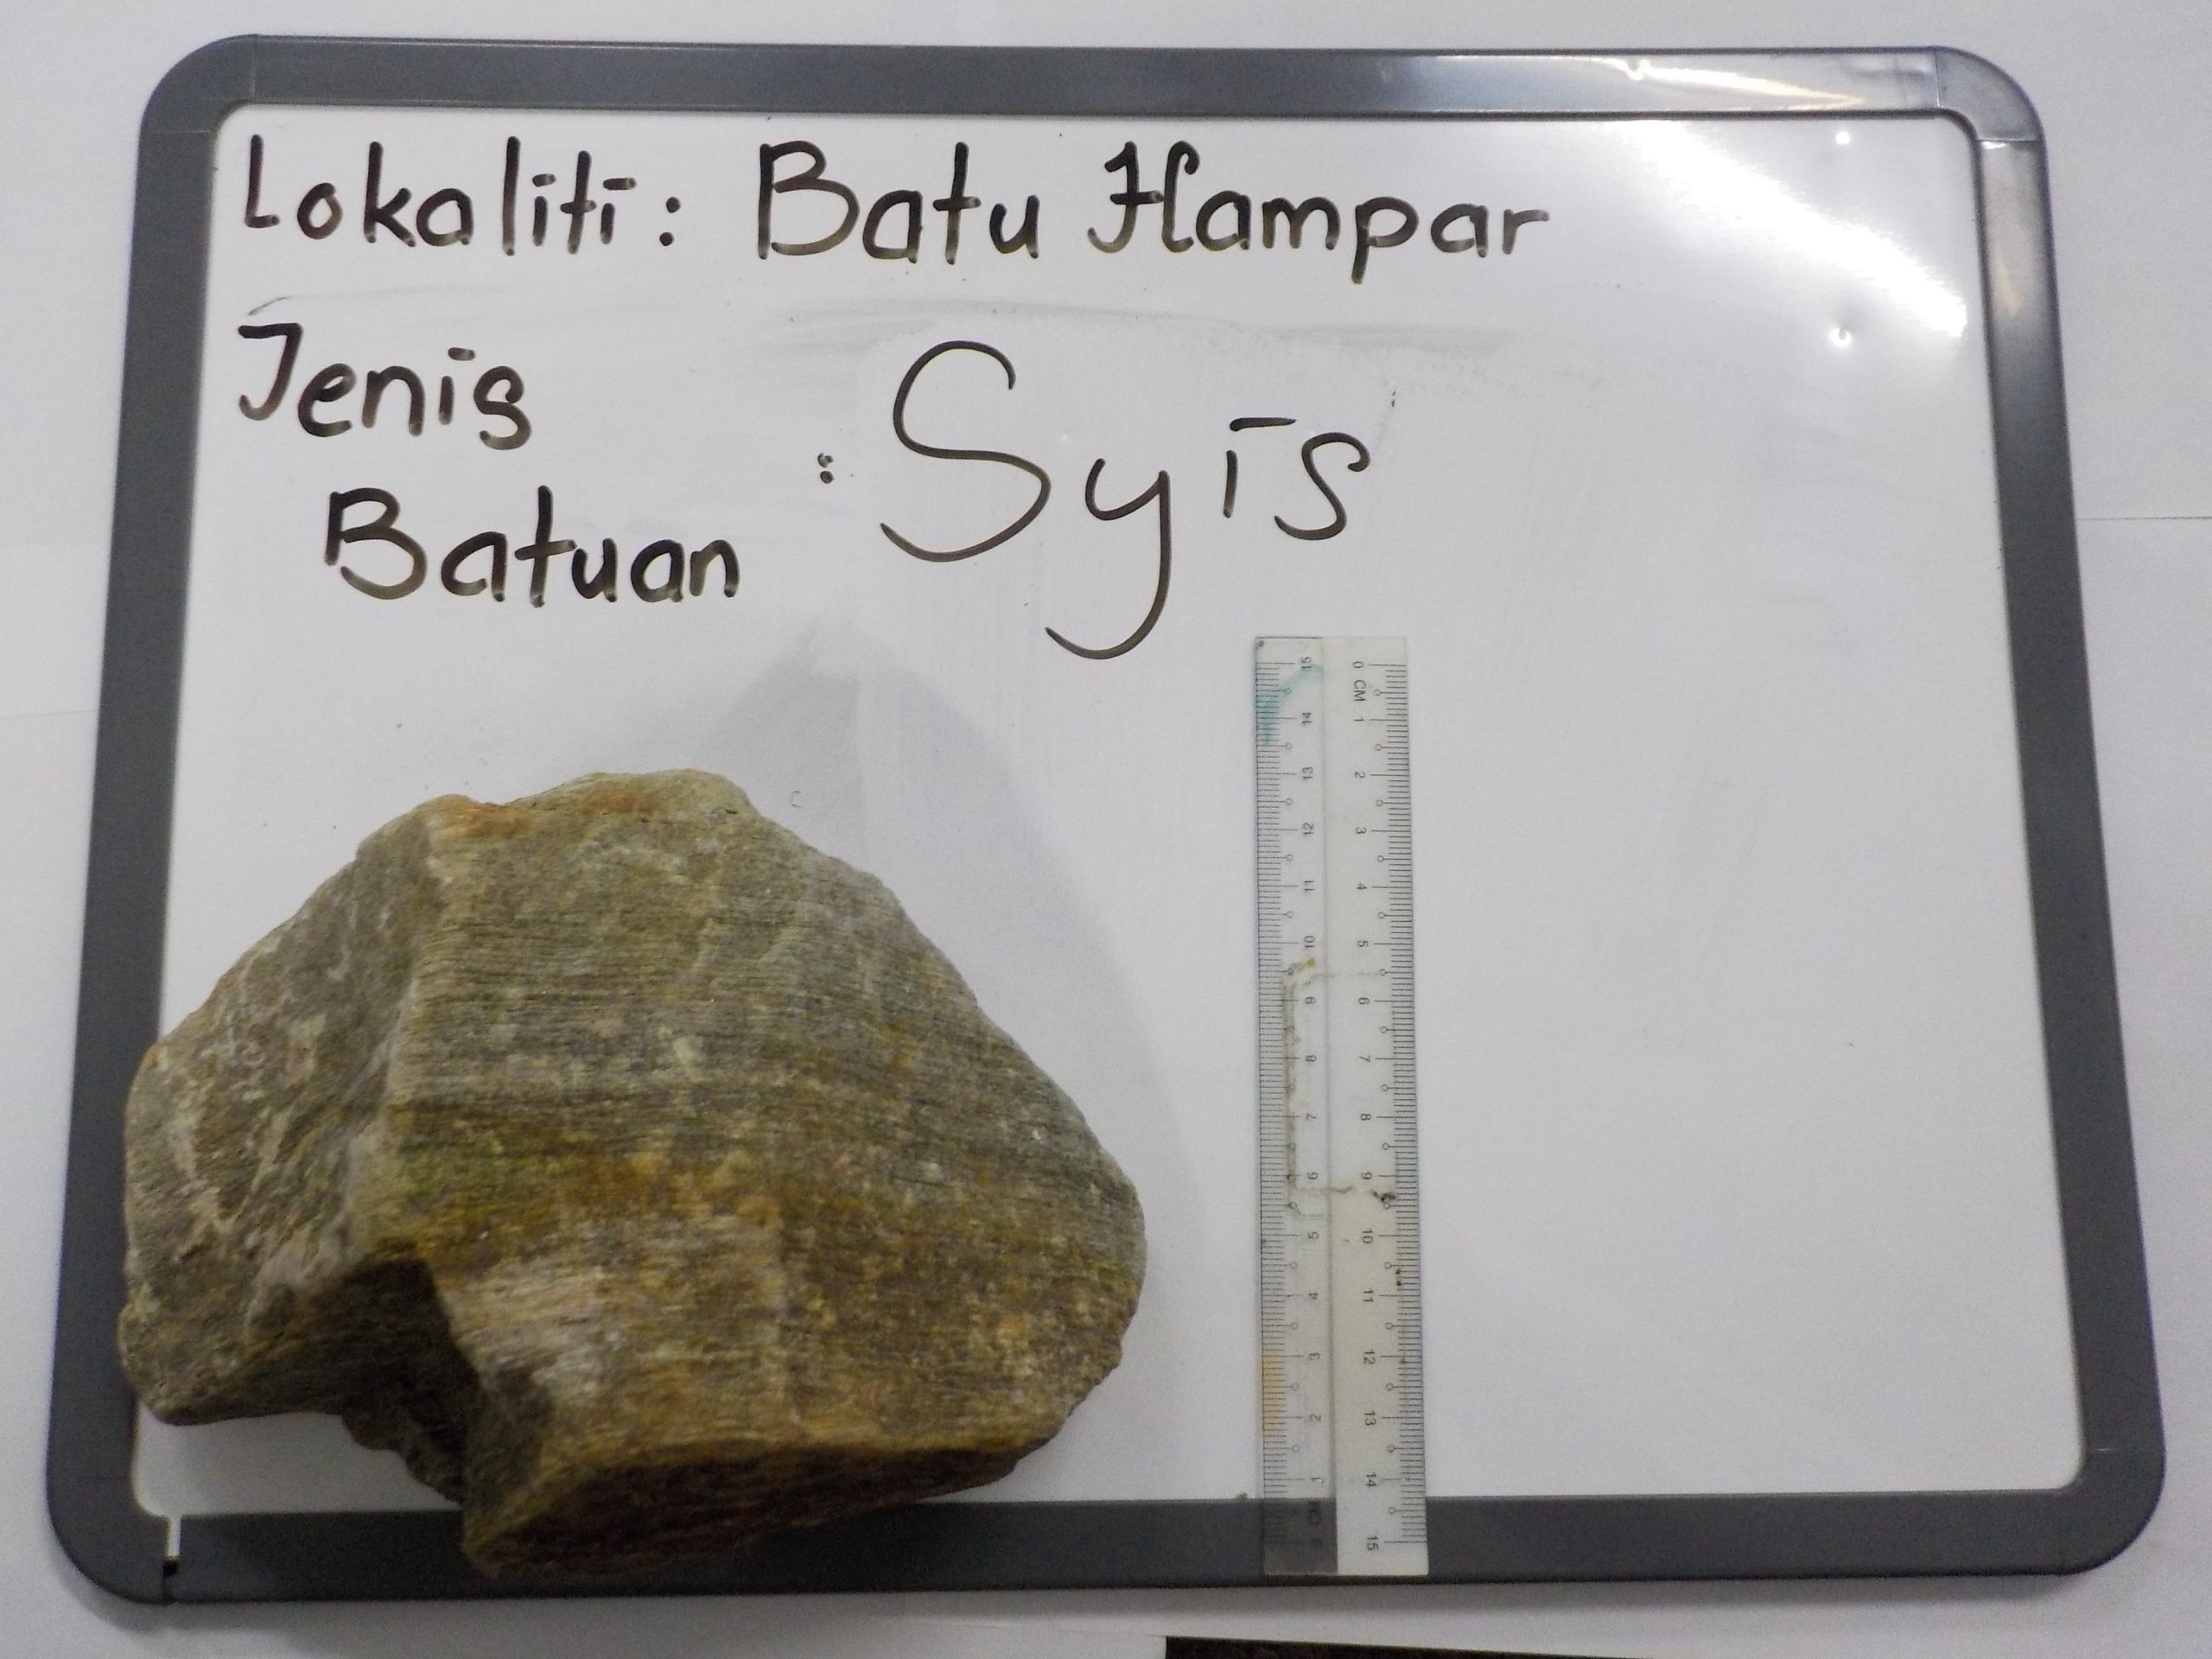 Lokaliti: Batu Hampar
Jenis
Batuan : Syis
15 14 13 12 11 10 9 8 7 6 5 4 3 2 1 0 CM
0 CM 1 2 3 4 5 6 7 8 9 10 11 12 13 14 15